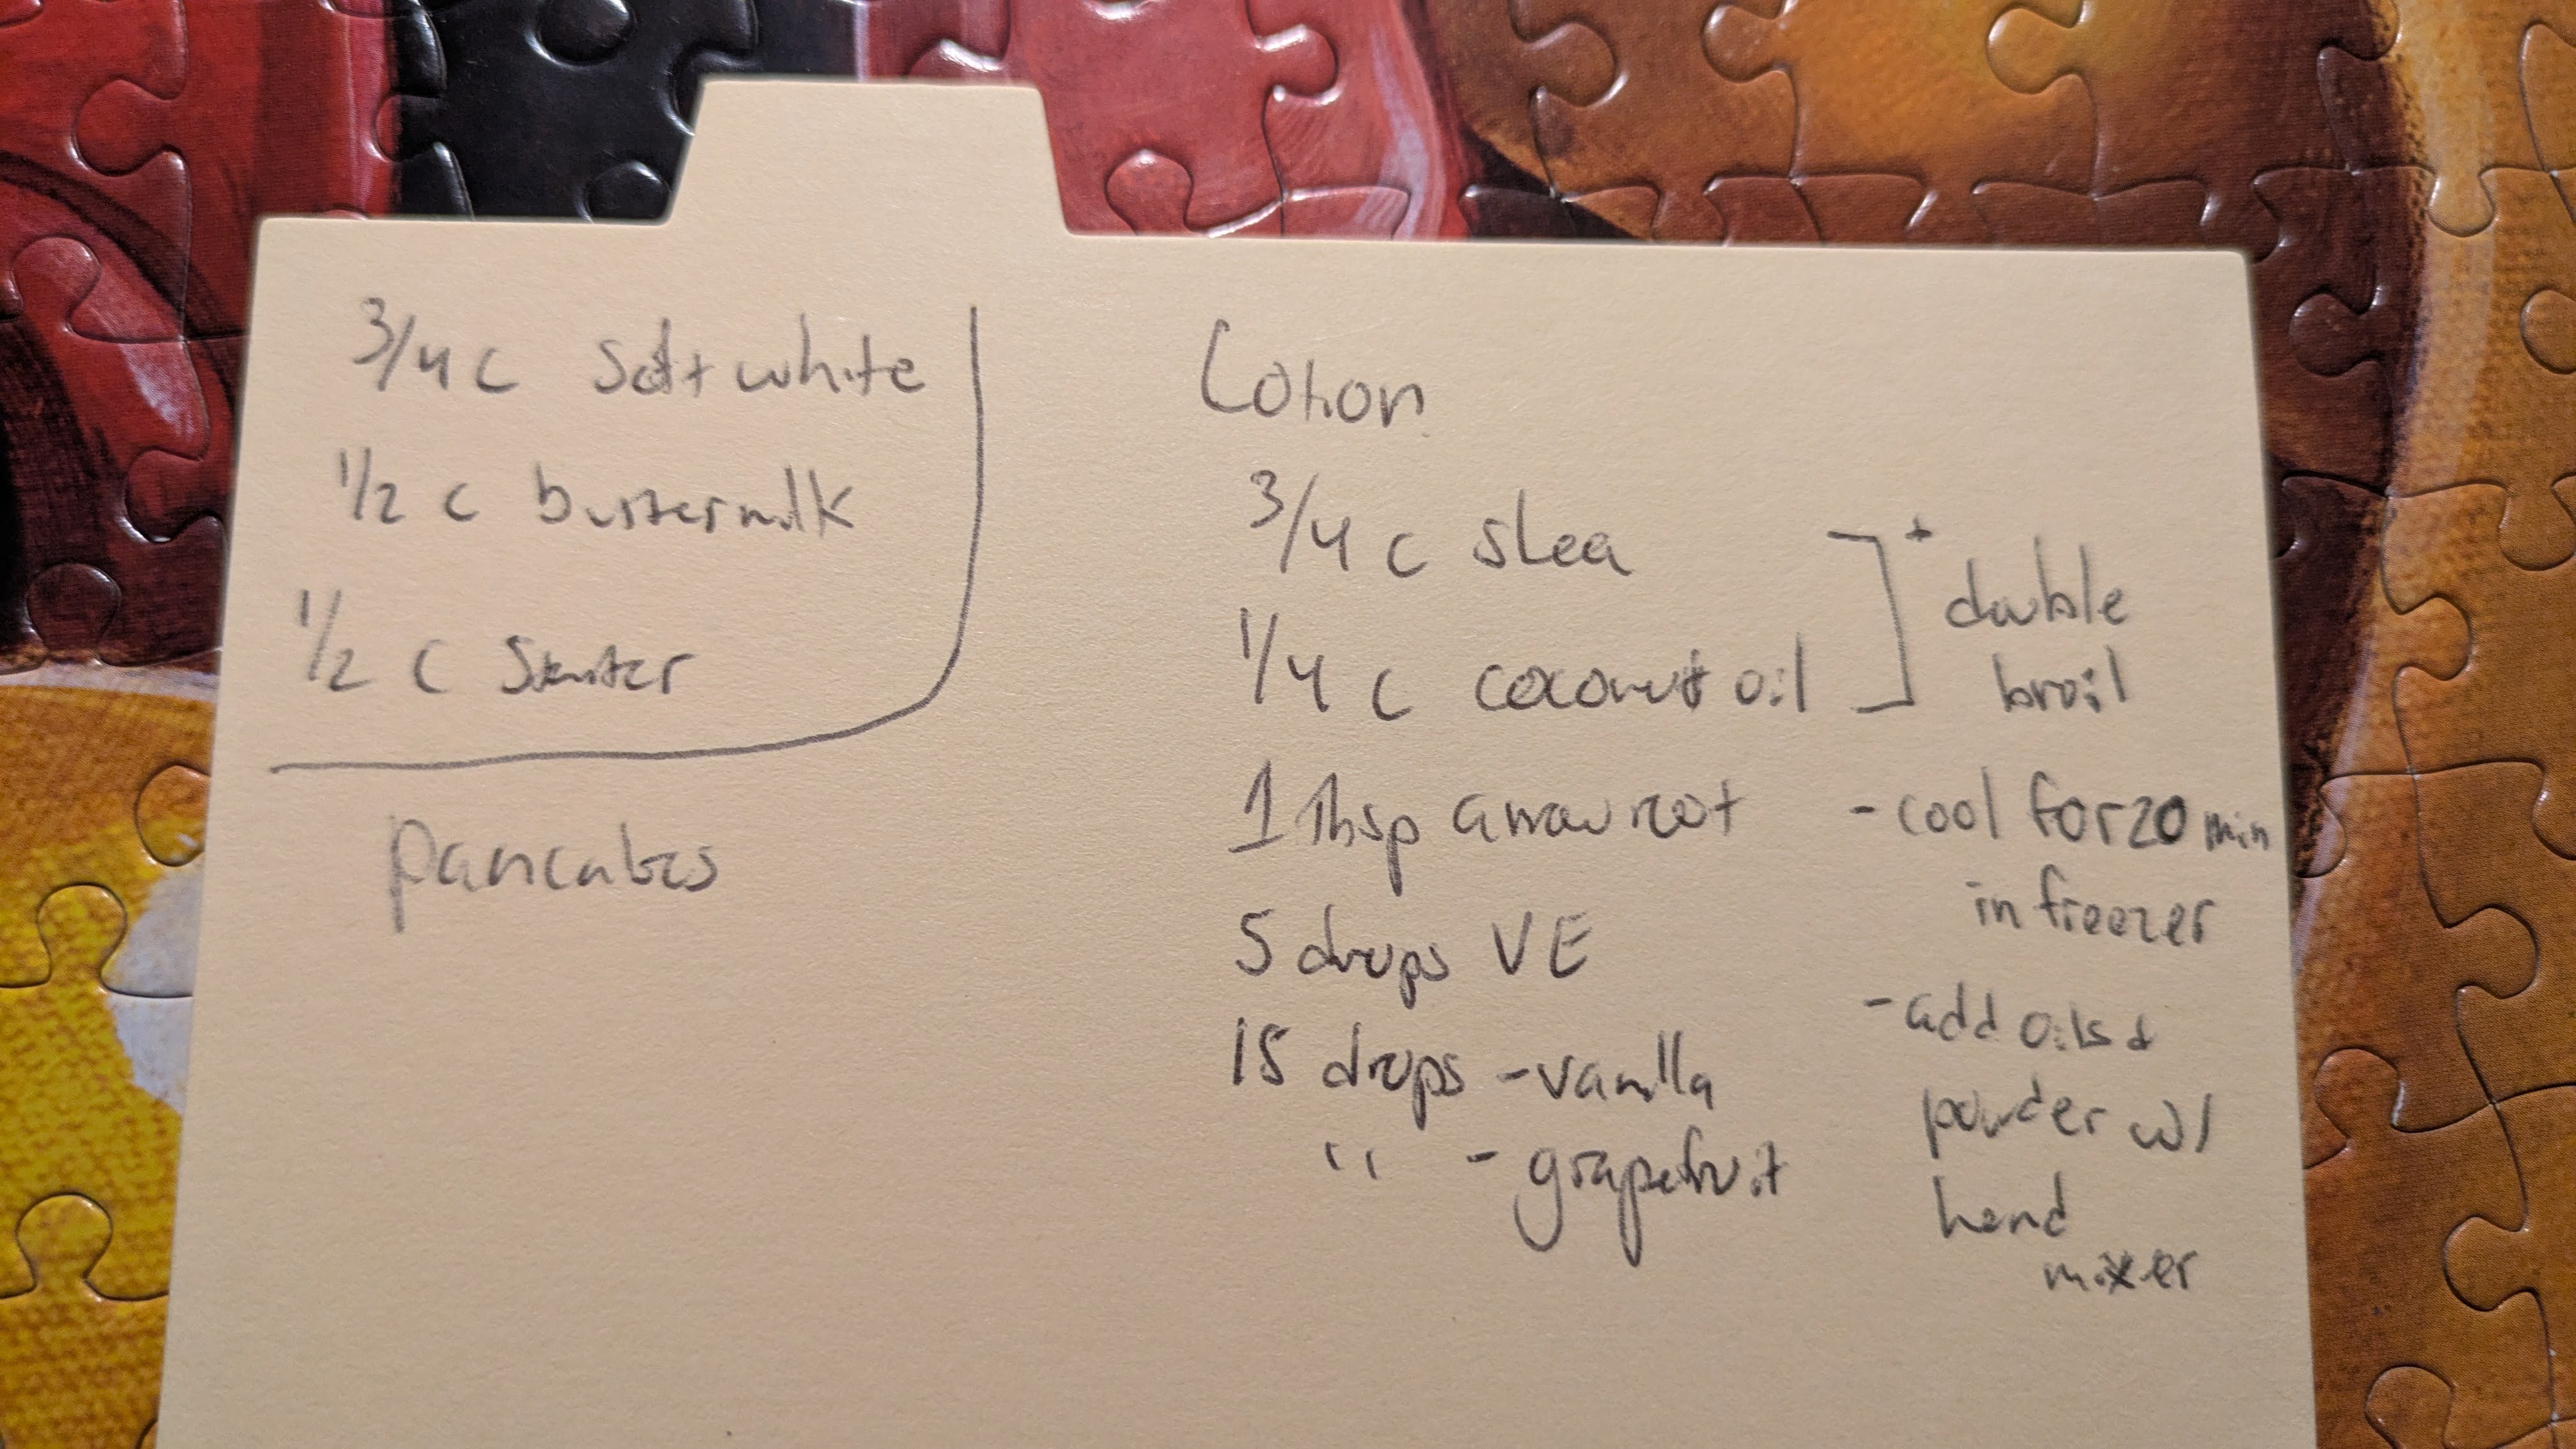 3/4 c Soft white
1/2 c buttermilk
1/2 c Starter
pancakes
Lotion
3/4 c shea
1/4 c coconut oil
1 Tbsp arrowroot
5 drops VE
15 drops - vanilla
" - grapefruit
double
broil
- cool for 20 min
in freezer
- add oils &
powder w/
hand
mixer